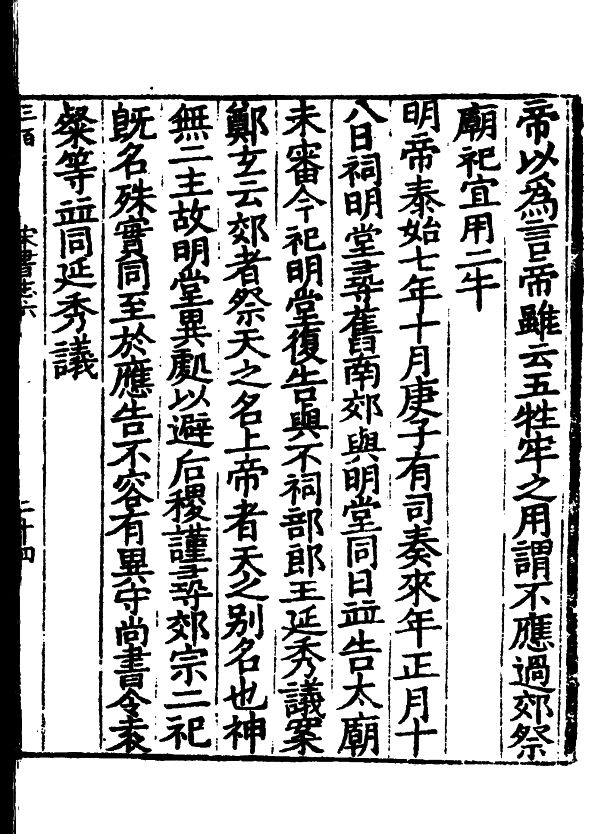 帝以爲言帝雖云五牲牢之用謂不應過郊祭
廟祀宜用二牛
明帝泰始七年十月庚子有司奏來年正月十
八日祠明堂尋舊南郊與明堂同日並告太廟
未審今祀明堂復告與不祠部郎王延秀議案
鄭玄云郊者祭天之名上帝者天之别名也神
無二主故明堂異處以避后稷謹尋郊宗二祀
旣名殊實同至於應告不容有異守尚書令袁
粲等並同延秀議
宋書志六
二十四